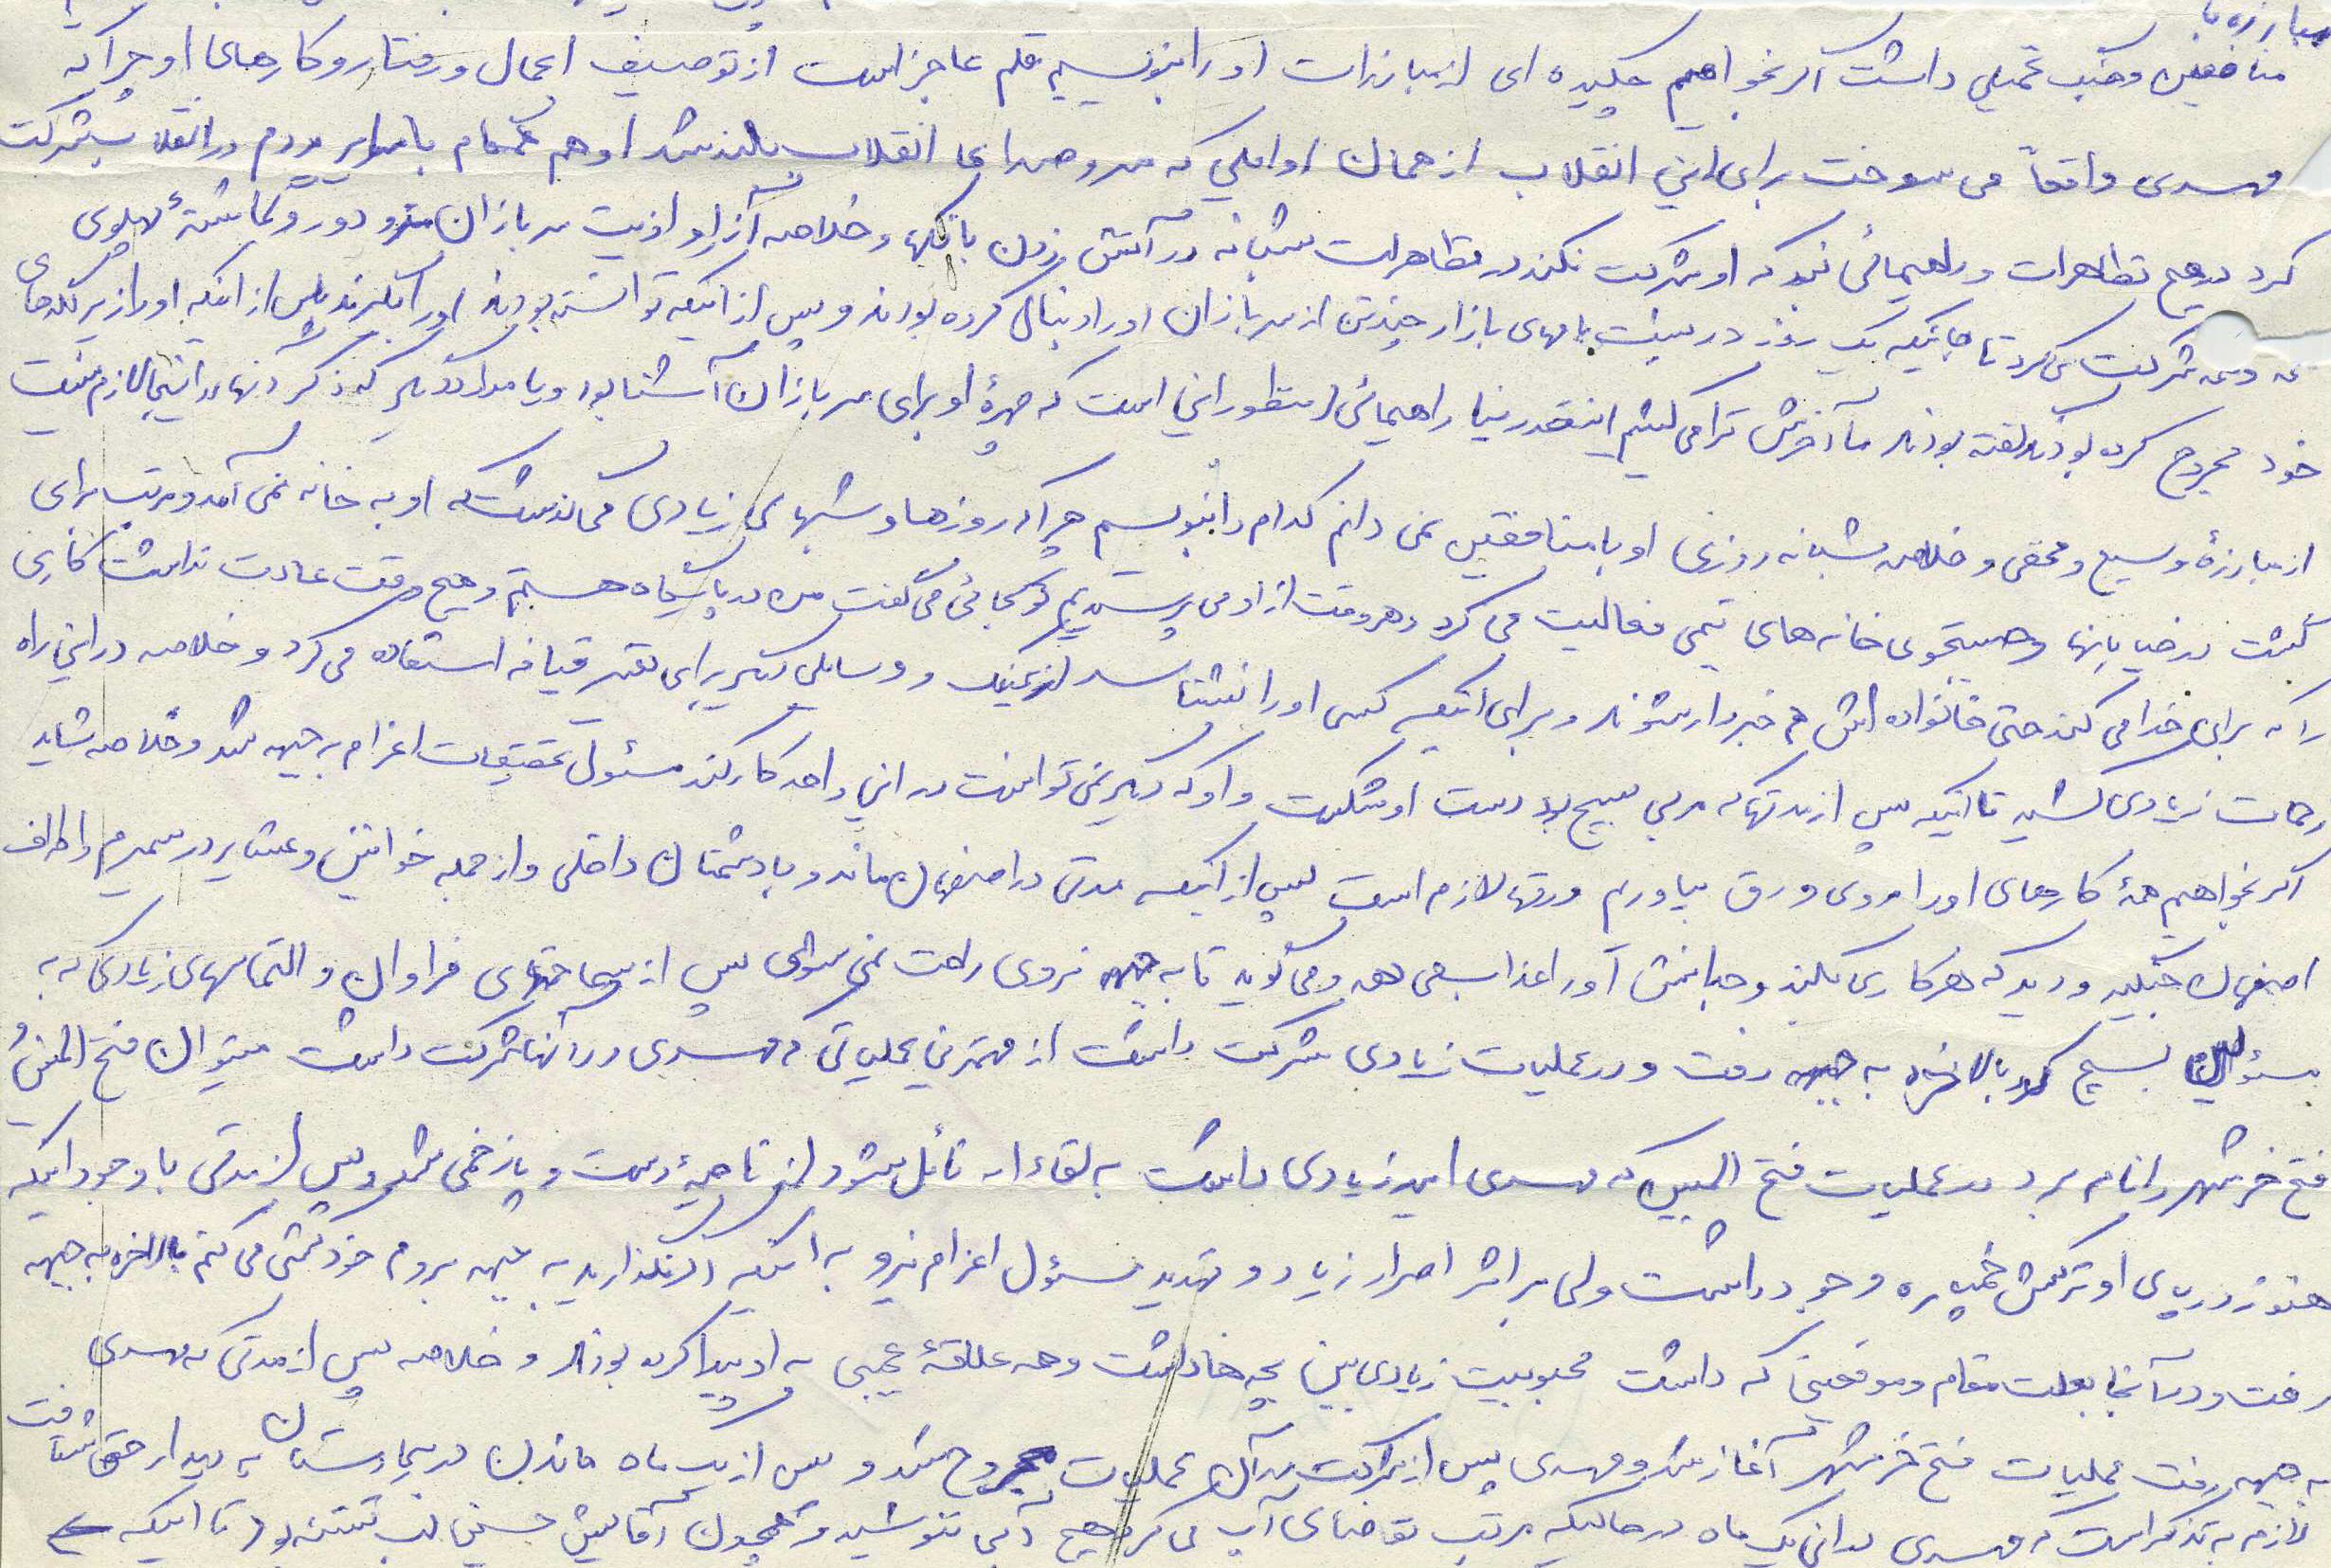 مبارزه با
منافقین وجنگ تحمیلی داشت اگر بخواهیم چکیده ای از مبارزات او را بنویسیم قلم عاجز است از توصیف اعمال و رفتار و کارهای او چرا که
مهدی واقعاً می سوخت برای این انقلاب از همان اوایلی که سر و صدای انقلاب بلند شد او هم همگام با سایر مردم در انقلاب شرکت
کرد در هیچ تظاهرات و راهپیمائی نبود که او شرکت نکند در تظاهرات شبانه در آتش زدن بانکها و خلاصه آزار و اذیت سربازان مزدور و گماشتهٔ پهلوی
همه و همه شرکت می کرد تا جائیکه یک روز در پشت بامهای بازار چند تن از سربازان او را دنبال کرده بودند و پس از اینکه توانسته بودند او را بگیرند پس از اینکه او را زیر لگدهای
خود مجروح کرده بودند گفته بودند ما آخرش ترا می کشیم اینقدر نیا راهپیمائی منظور این است که چهرهٔ او برای سربازان آشنا بود و یا موارد دیگر که ذکر آنها در اینجا لازم نیست
از مبارزهٔ وسیع و مخفی و خلاصه شبانه روزی او با منافقین نمی دانم کدام را بنویسم چرا که روزها و شبهای زیادی می گذشت که او به خانه نمی آمد و مرتب برای
گشت در خیابانها و جستجوی خانه های تیمی فعالیت می کرد و هر وقت از او می پرسیدیم تو کجائی می گفت من در پایگاه هستم و هیچ وقت عادت نداشت کاری
را که برای خدا می کند حتی خانواده اش هم خبردار شوند و برای اینکه کسی او را نشناسد از عینک و وسایل دیگر برای تغییر قیافه استفاده می کرد و خلاصه در این راه
زحمات زیادی کشید تا اینکه پس از مدتها که مربی بسیج بود دست او شکست و او که دیگر نمی توانست در این واحد کار کند مسئول تحقیقات اعزام به جبهه شد و خلاصه شاید
اگر بخواهیم همهٔ کارهای او را روی ورق بیاورم ورقها لازم است پس از اینکه مدتی در اصفهان ماند و با دشمنان داخلی و از جمله خوانین و عشایر در سمیرم و اطراف
اصفهان جنگید و دید که هر کاری بکند وجدانش او را عذاب می دهد و می گوید تا به جبهه نروی راحت نمی شوی پس از سماجتهای فراوان و التماسهای زیادی که به
مسئولین بسیج کرد بالاخره به جبهه رفت و در عملیات زیادی شرکت داشت از مهمترین عملیاتی که مهدی در آنها شرکت داشت میتوان فتح المبین و
فتح خرمشهر را نام برد در عملیات فتح المبین که مهدی امید زیادی داشت به لقاء الله نائل شود از ناحیهٔ دست و پا زخمی شد و پس از مدتی با وجود اینکه
هنوز در پای او ترکش خمپاره وجود داشت ولی بر اثر اصرار زیاد و تهدید مسئول اعزام نیرو به اینکه اگر نگذارید به جبهه بروم خودکشی می کنم بالاخره به جبهه
رفت و در آنجا بعلت مقام و موقعیتی که داشت محبوبیت زیادی بین بچه ها داشت و همه علاقهٔ عجیبی به او پیدا کرده بودند و خلاصه پس از مدتی که مهدی
به جبهه رفت عملیات فتح خرمشهر آغاز شد و مهدی پس از شرکت در آن عملیات مجروح شد و پس از یک ماه ماندن در بیمارستان به دیدار حق شتافت
لازم به تذکر است که مهدی در این یک ماه در حالیکه مرتب تقاضای آب می کرد هیچ آبی ننوشید و همچون آقایش حسین لب تشنه بود تا اینکه ←